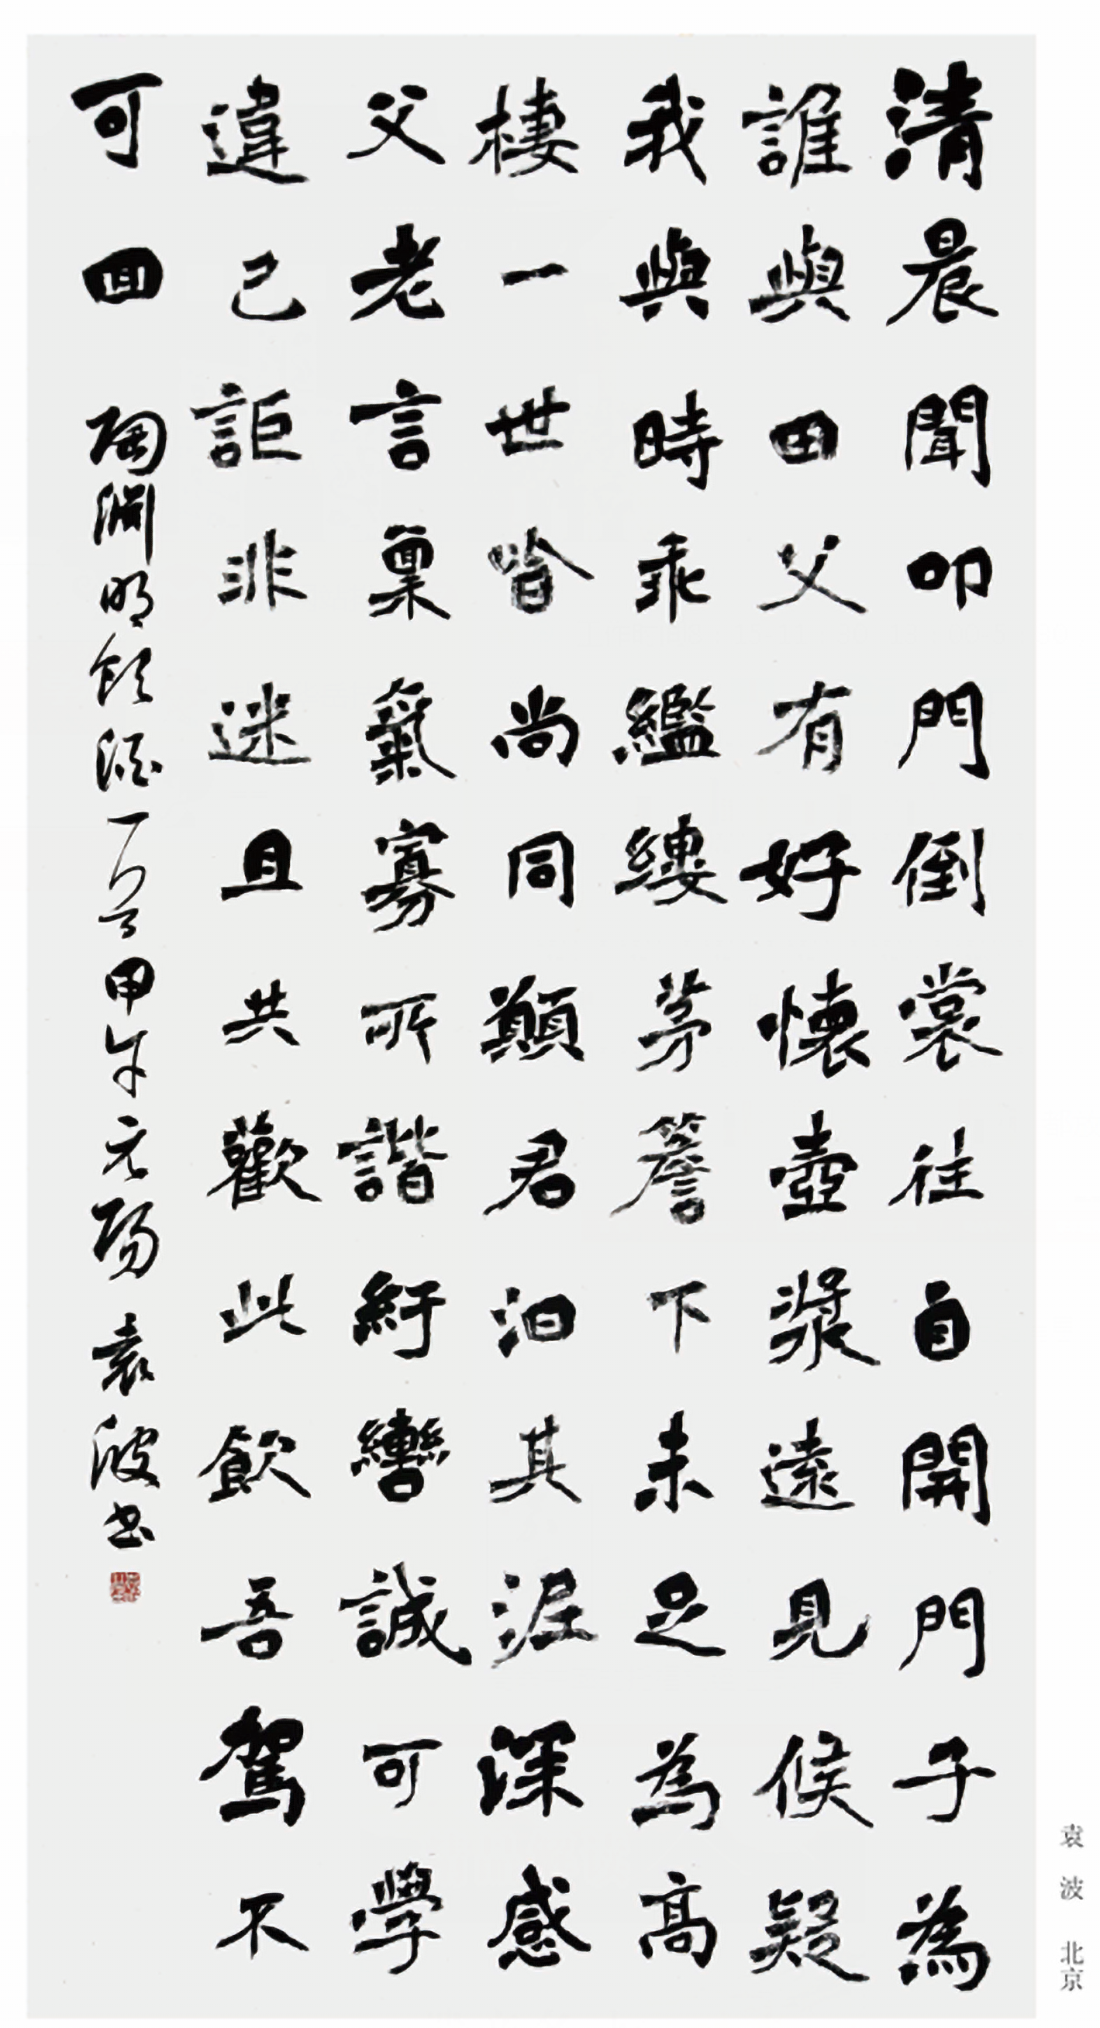 清晨聞叩門倒裳往自開門子為
誰與田父有好懷壺漿遠見候疑
我與時乖繿縷茅簷下未足為高
棲一世皆尚同願君汩其泥深感
父老言稟氣寡所諧紆轡誠可學
違己詎非迷且共歡此飲吾駕不
可囬 陶淵明飲酒一首甲午元陽 袁波书
袁波 北京